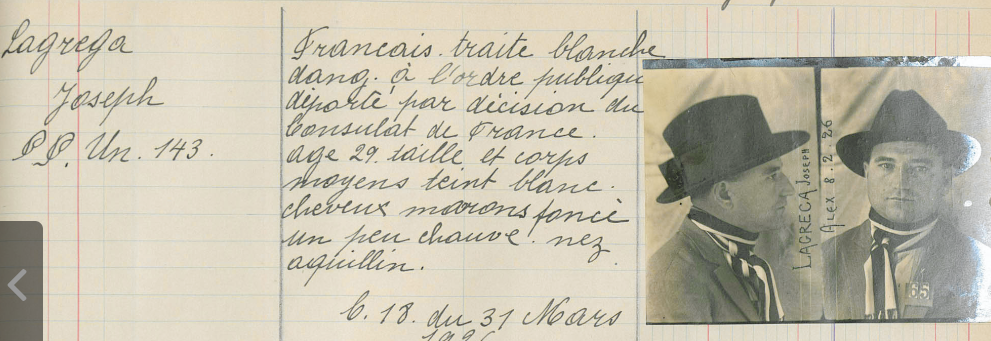 Lagrega
Joseph
P.P. Un. 143.
Francais. traite blanche
dang. à l'ordre publique
déporté par décision du
Consulat de France.
age 29. taille et corps
moyens teint blanc.
cheveux marons foncé
un peu chauve. nez
aquillin.
C. 18. du 31 Mars
LAGRECA JOSEPH
ALEX 8.2.26
65